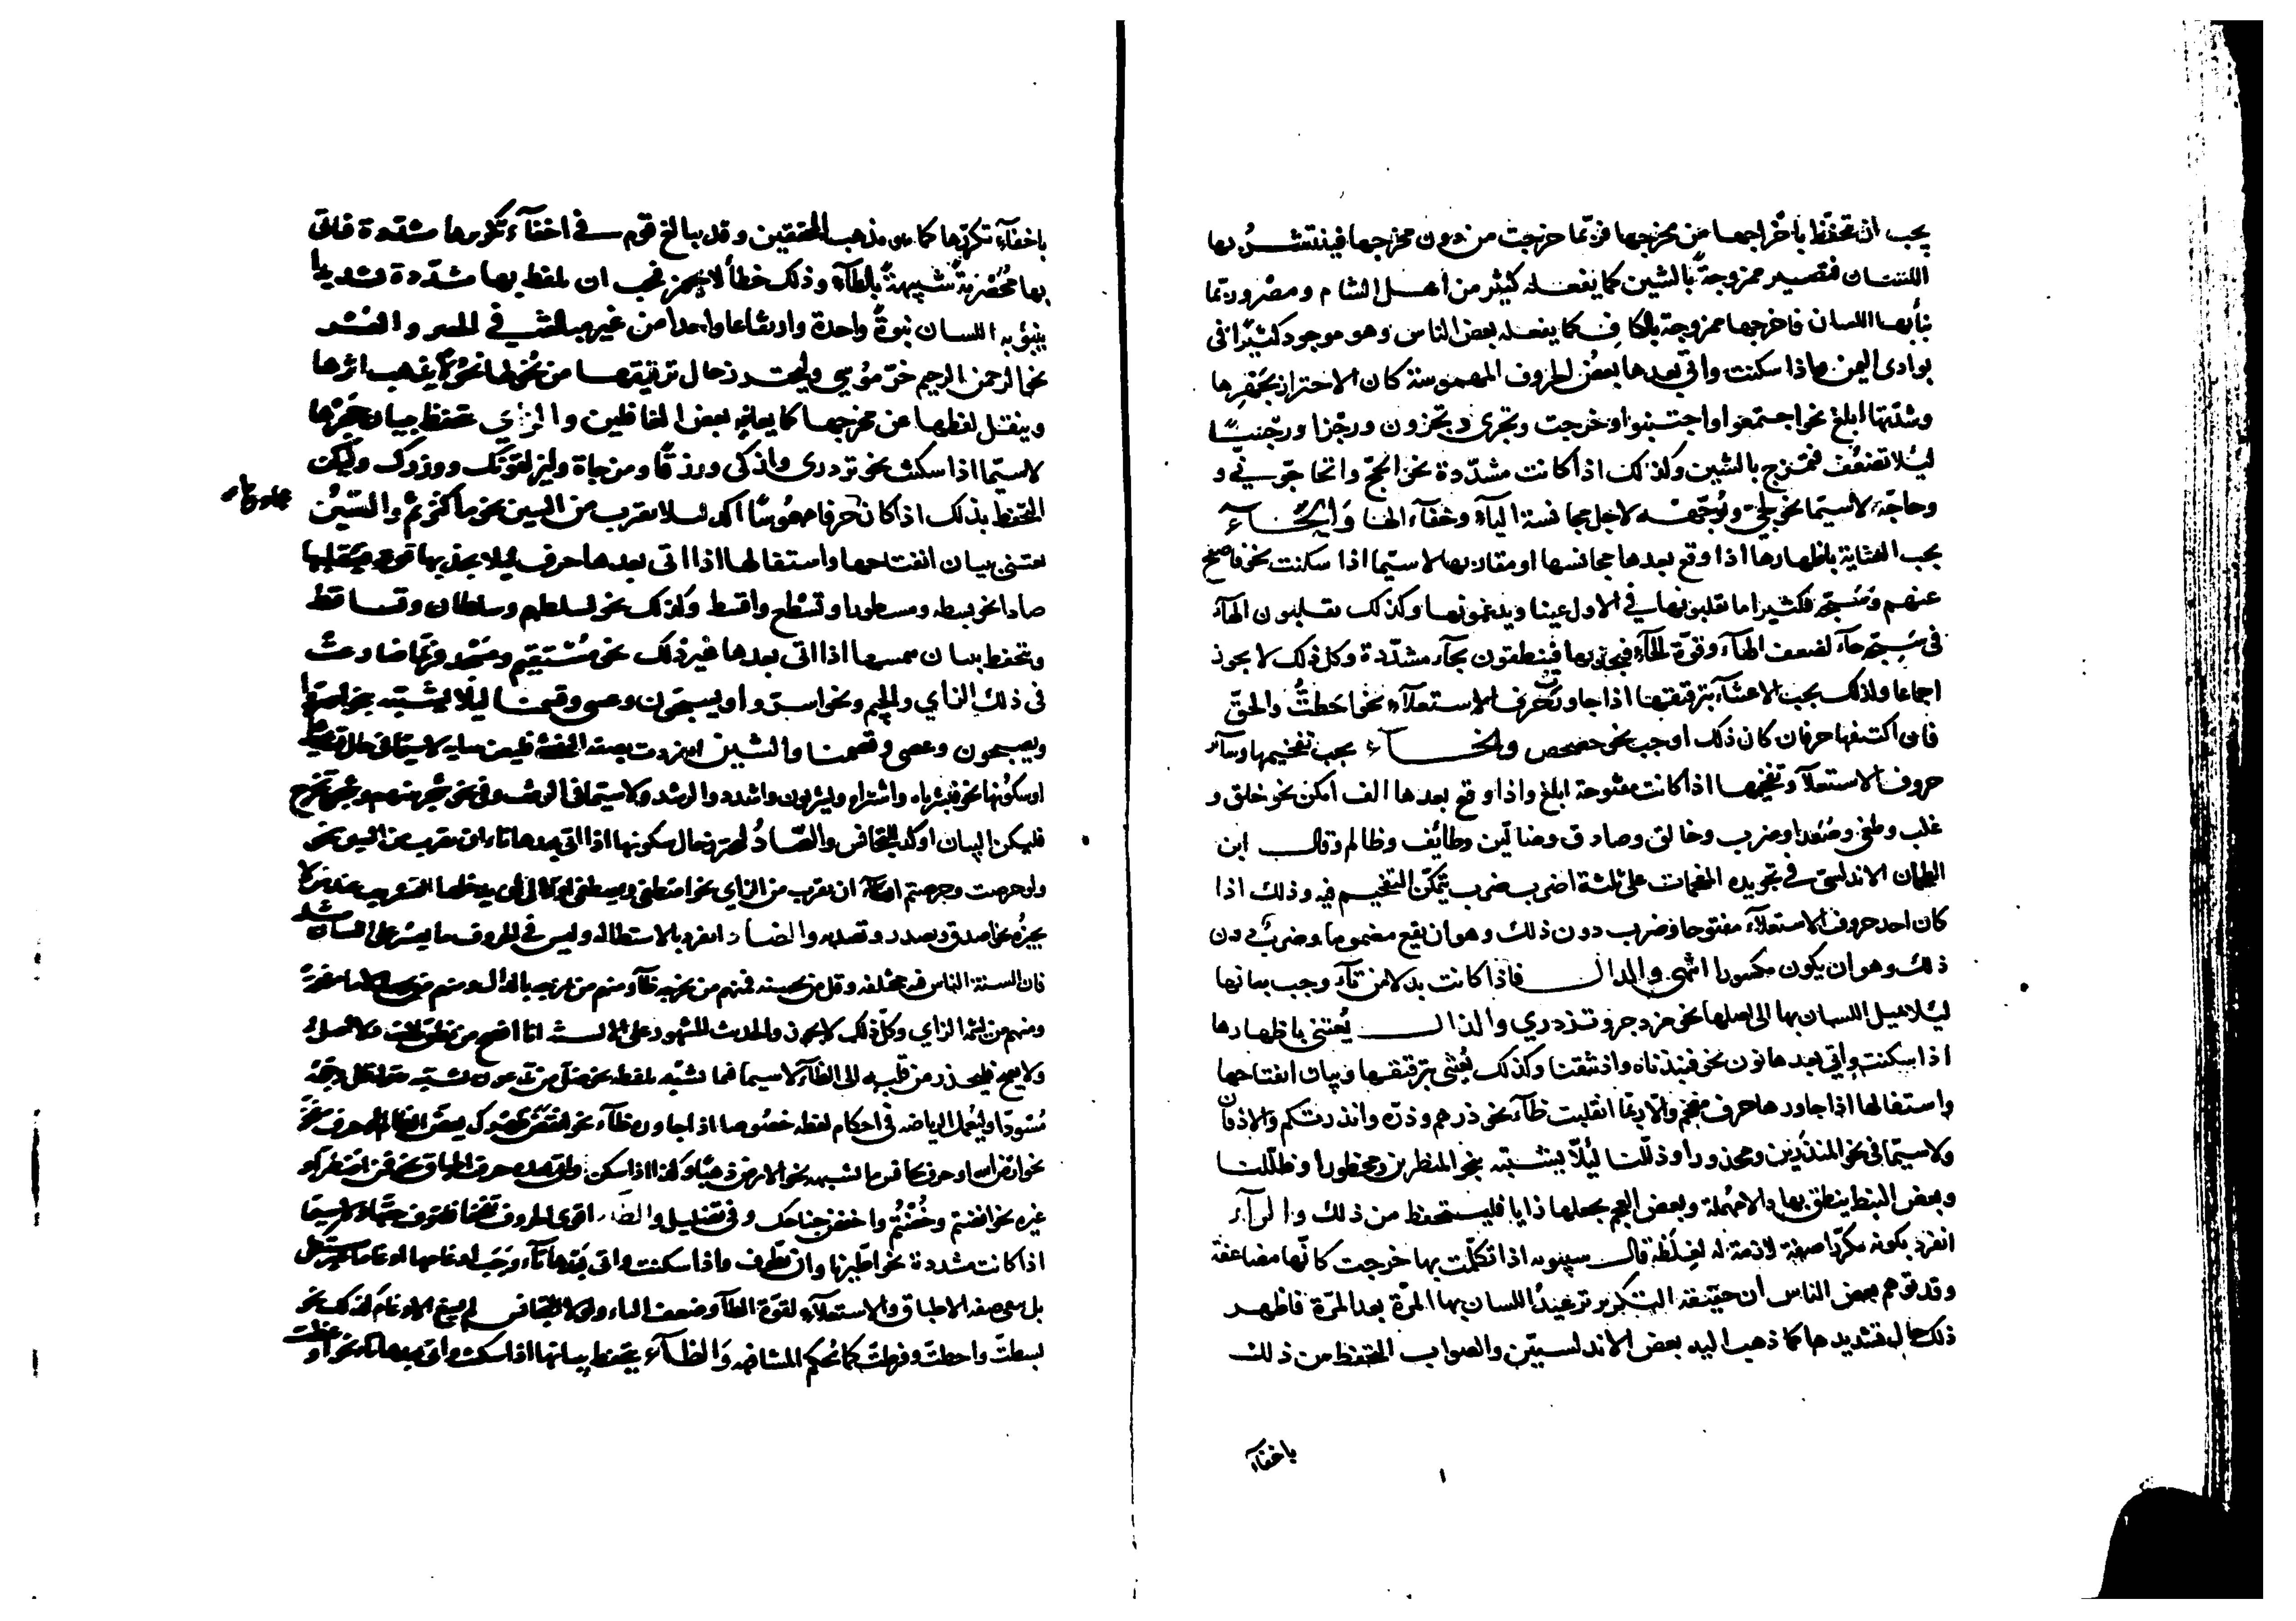 يجب ان يتحفظ باخراجها من مخرجها فربّما خرجت من دون مخرجها فينتشر بها
اللسان فتصير ممزوجة بالشين كما يفعله كثير من اهل الشام ومصر وربّما
نبأ بها اللسان فاخرجها ممزوجة بالكاف كما يفعله بعض الناس وهو موجود كثيرا فى
بوادى اليمن واذا سكنت واتى بعدها بعض الحروف المهموسة كان الاحتراز بجهرها
وشدّتها ابلغ نحو اجتمعوا واجتنبوا وخرجت وتجرى وتجزون ورجزا ورجسا
لئلا تضعف فتمتزج بالشين وكذلك اذا كانت مشدّدة نحو الحجّ واتحاجّونّي و
وحاجّه لاسيّما نحو لجّيّ ويوجّهه لاجل مجانسة الياء وخفآء الها والحآء
يجب العناية باظهارها اذا وقع بعدها مجانسها او مقاربها لاسيّما اذا سكنت نحو فاصفح
عنهم وسبّحه فكثيرا ما يقلبونها في الاول عينا ويدغمونها وكذلك يقلبون الهآء
فى سبّحه حآء لضعف الهآء وقوّة الحآء فيجذبها فينطقون بحآء مشدّدة وكل ذلك لا يجوز
اجماعا ولذلك يجب الاعتنآء بترقيقها اذا جاورت حرف الاستعلآء نحو احطتُ والحقّ
فان اكتنفها حرفان كان ذلك اوجب نحو حصحص والخآء يجب تفخيمها وسآئر
حروف الاستعلآ وتفخيمها اذا كانت مفتوحة ابلغ واذا وقع بعدها الف امكن نحو خلق و
غلب وطغى وصُعدا وضرب وخالق وصادق وضالّين وطائف وظالم وقال ابن
الطحان الاندلسى في تجويده المفخمات على ثلثة اضرب ضرب يتمكّن التفخيم فيه وذلك اذا
كان احد حروف الاستعلآء مفتوحا وضرب دون ذلك وهو ان يقع مضموما وضرب دون
ذلك وهو ان يكون مكسورا انتهى والدال فاذا كانت بدلا من تآء وجب بيانها
لئلا يميل اللسان بها الى اصلها نحو مزدجر وتزدري والذال يُعتنى باظهارها
اذا سكنت واتي بعدها نون نحو فنبذناه واذ نتقنا وكذلك يُعتنى بترقيقها وبيان انفتاحها
واستفالها اذا جاورها حرف مفخم والّا ربّما انقلبت ظآء نحو ذرهم وذرّه وانذرتكم والاذقان
ولاسيّما في نحو المنذرين ومحذورا وذلّلنا لئلّا يشتبه بنحو المنظرين ومحظورا وظلّلنا
وبعض النبط ينطق بها دالا مهملة وبعض العجم يجعلها زايا فليتحفظ من ذلك والرآء
انفرد بكونه مكرّرا صفة لازمة له لغلظه قال سيبويه اذا تكلّمت بها خرجت كانّها مضاعفة
وقد توهم بعض الناس ان حقيقة التكرير ترعيد اللسان بها المرّة بعد المرّة فاظهر
ذلك حال تشديدها كما ذهب اليه بعض الاندلسيّين والصواب التحفظ من ذلك
باخفآء
باخفآء تكريرها كما هو مذهب المحققين وقد يبالغ قوم في اخفآء تكريرها مشدّدة فيأتى
بها محصرمة شبيهة بالطآء وذلك خطأ لا يجوز فيجب ان يلفظ بها مشدّدة تشديدا
ينبؤ به اللسان نبوة واحدة وارتفاعا واحدا من غير مبالغة في الحصر والعسر
نحو الرحمن الرحيم خرّ موسي وليحترز حال ترقيقها من نحولها نحولا يذهب اثرها
وينقل لفظها عن مخرجها كما يعانيه بعض الغافلين والزاي يتحفظ ببيان جهرها
لاسيّما اذا سكنت نحو تزدرى وازكى ورزقا ومزجاة وليزلقونك ووزرك وليكن
التحفظ بذلك اذا كان حرفا مهموسا آكد لئلا يقرب من السين نحو ما كنزتم والسين
يعتنى ببيان انفتاحها واستفالها اذا اتى بعدها حرف لئلا يجذبها قوته فيقلبها
صادا نحو بسطه ومسطورا وتستطع واقسط وكذلك نحو لسلطهم وسلطان وتساقط
ويتحفظ ببيان همسها اذا اتى بعدها غير ذلك نحو مستقيم ومسجد فربّما ضارعت
فى ذلك الزاي والجيم ونحو اسرّوا ويسبحون وعسى وقسمنا لئلّا يشتبه بنحو اصرّوا
ويصبحون وعصى وقصمنا والشين انفردت بصفة التفشى فليعن ببيانه لاسيّما في حال تشديده
او سكونها نحو فبشّرناه واشتراه ويشربون واشدد والرشد ولاسيما فى الوقف وفى نحو شجر بينهم وشجرة تخرج
فليكن البيان اوكد للتجانس والصاد ليحترز حال سكونها اذا اتى بعدها تاء ان تقرب من السين نحو
ولو حرصت وحرصتم او طآء ان يقرب من الزاي نحو اصطفى ويصطفى او دال ان يدخلها التشريب عند من لا
يجيزه نحو اصدق ويصدر وتصديه والضاد انفرد بالاستطالة وليس في الحروف ما يعسر على اللسان مثله
فان السنة الناس فيه مختلفه وقل من يحسنه فمنهم من يخرجه ظآء ومنهم من يمزجه بالدال ومنهم من يجعله لاما مفخمة
ومنهم من يشمه الزاي وكل ذلك لا يجوز والحديث المشهور على الالسنة انا افصح من نطق بالضاد لا اصل له
ولا يصح فليحذر من قلبه الى الظآء لاسيما فيما يشتبه بلفظه نحو ضل من تدعون يشتبه بقوله ظل وجهه
مسودّا وليُعمل الرياضه في احكام لفظه خصوصا اذا جاوره ظآء نحو انقض ظهرك يعض الظالم او حرف مفخم
نحو ارض الله او حرف يجانس ما يشبهه نحو الارض ذهبا وكذا اذا سكن واتى بعده حرف اطباق نحو فمن اضطر او
غيره نحو افضتم وخضتم واخفض جناحك وفى تضليل والطآء اقوى الحروف تفخيما فلتوف حقها ولاسيّما
اذا كانت مشددة نحو اطّيرنا وان يطّوف واذا سكنت واتى بعدها تآء وجب ادغامها ادغاما غير مستكمل
بل تبقى صفة الاطباق والاستعلآء لقوّة الطآء وضعف التاء ولولا التجانس لم يسغ الادغام لذلك نحو
بسطت واحطت وفرطت كما تحكم المشافهه والظآء يتحفظ ببيانها اذا سكنت واتى بعدها تاء نحو اوعظت